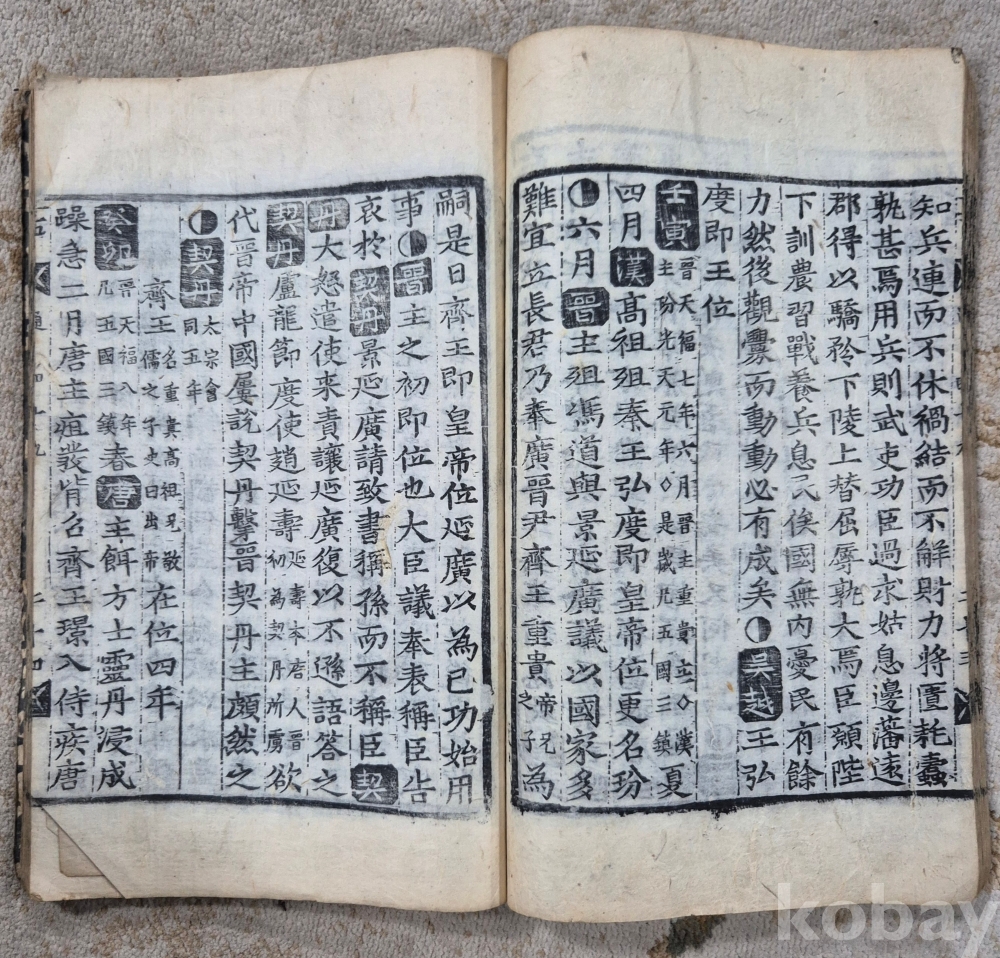 知兵連而不休禍結而不解財力將匱耗蠹
孰甚焉用兵則武吏功臣過求姑息邊藩遠
郡得以驕矜下陵上替屈辱孰大焉臣願陛
下訓農習戰養兵息民俟國無內憂民有餘
力然後觀釁而動動必有成矣吳越王弘
度即王位
壬寅
晉天福七年六月晉主重貴立○漢
主玢光天元年○是歲凡五國三鎮
夏
四月漢高祖殂秦王弘度即皇帝位更名玢
六月晉主殂馮道與景延廣議以國家多
難宜立長君乃奉廣晉尹齊王重貴
帝兄
之子
為
嗣是日齊王即皇帝位延廣以為己功始用
事晉主之初即位也大臣議奉表稱臣告
哀於契丹景延廣請致書稱孫而不稱臣契
丹大怒遣使來責讓延廣復以不遜語答之
契丹盧龍節度使趙延壽
延壽本唐人晉
初為契丹所虜
欲
代晉帝中國屢說契丹擊晉契丹主頗然之
契丹
太宗會
同五年
齊王
名重貴高祖兄敬
儒之子史曰出帝
在位四年
癸卯
晉天福八年
凡五國三鎮
春唐主餌方士靈丹浸成
躁急二月唐主疽發背召齊王璟入侍疾唐
kobay